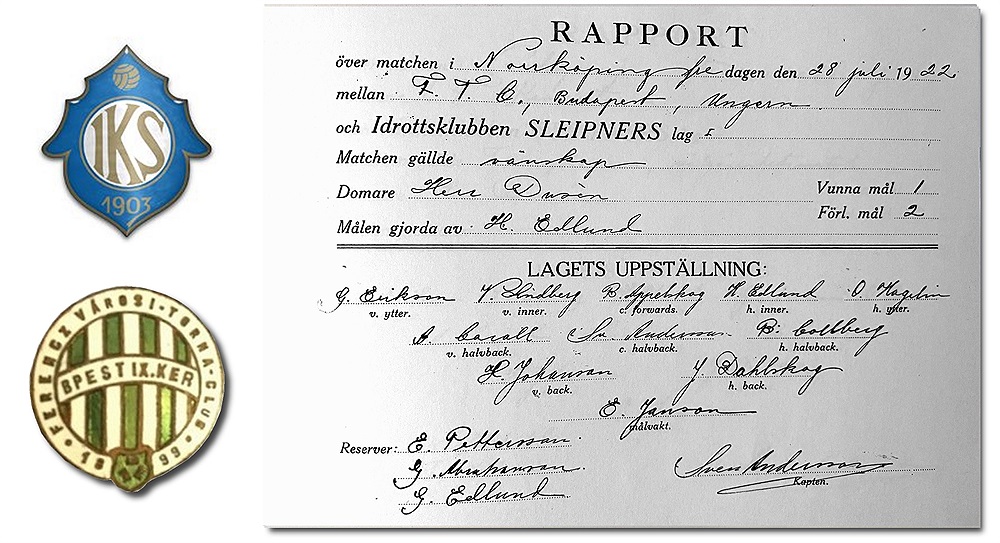 IKS
1903
FERENCZVÁROSI-TORNA-CLUB
BPEST IX. KER
1899
RAPPORT
över matchen i Norrköping fre dagen den 28 juli 1922
mellan F. T. C., Budapest, Ungern
och Idrottsklubben SLEIPNERS lag I
Matchen gällde vänskap
Domare Herr Dusén Vunna mål 1
Målen gjorda av H. Edlund Förl. mål 2
LAGETS UPPSTÄLLNING:
G. Erikson V. Lindberg R. Appelskog H. Edlund O. Hagelin
v. ytter. v. inner. c. forwards. h. inner. h. ytter.
A. Sv. Andersson B. Collberg
v. halvback. c. halvback. h. halvback.
H. Johanson J. Dahlskog
v. back. h. back.
E. Janson
målvakt.
Reserver: E. Pettersson
G. Abrahamson Sven Andersson
Kapten.
G. Edlund